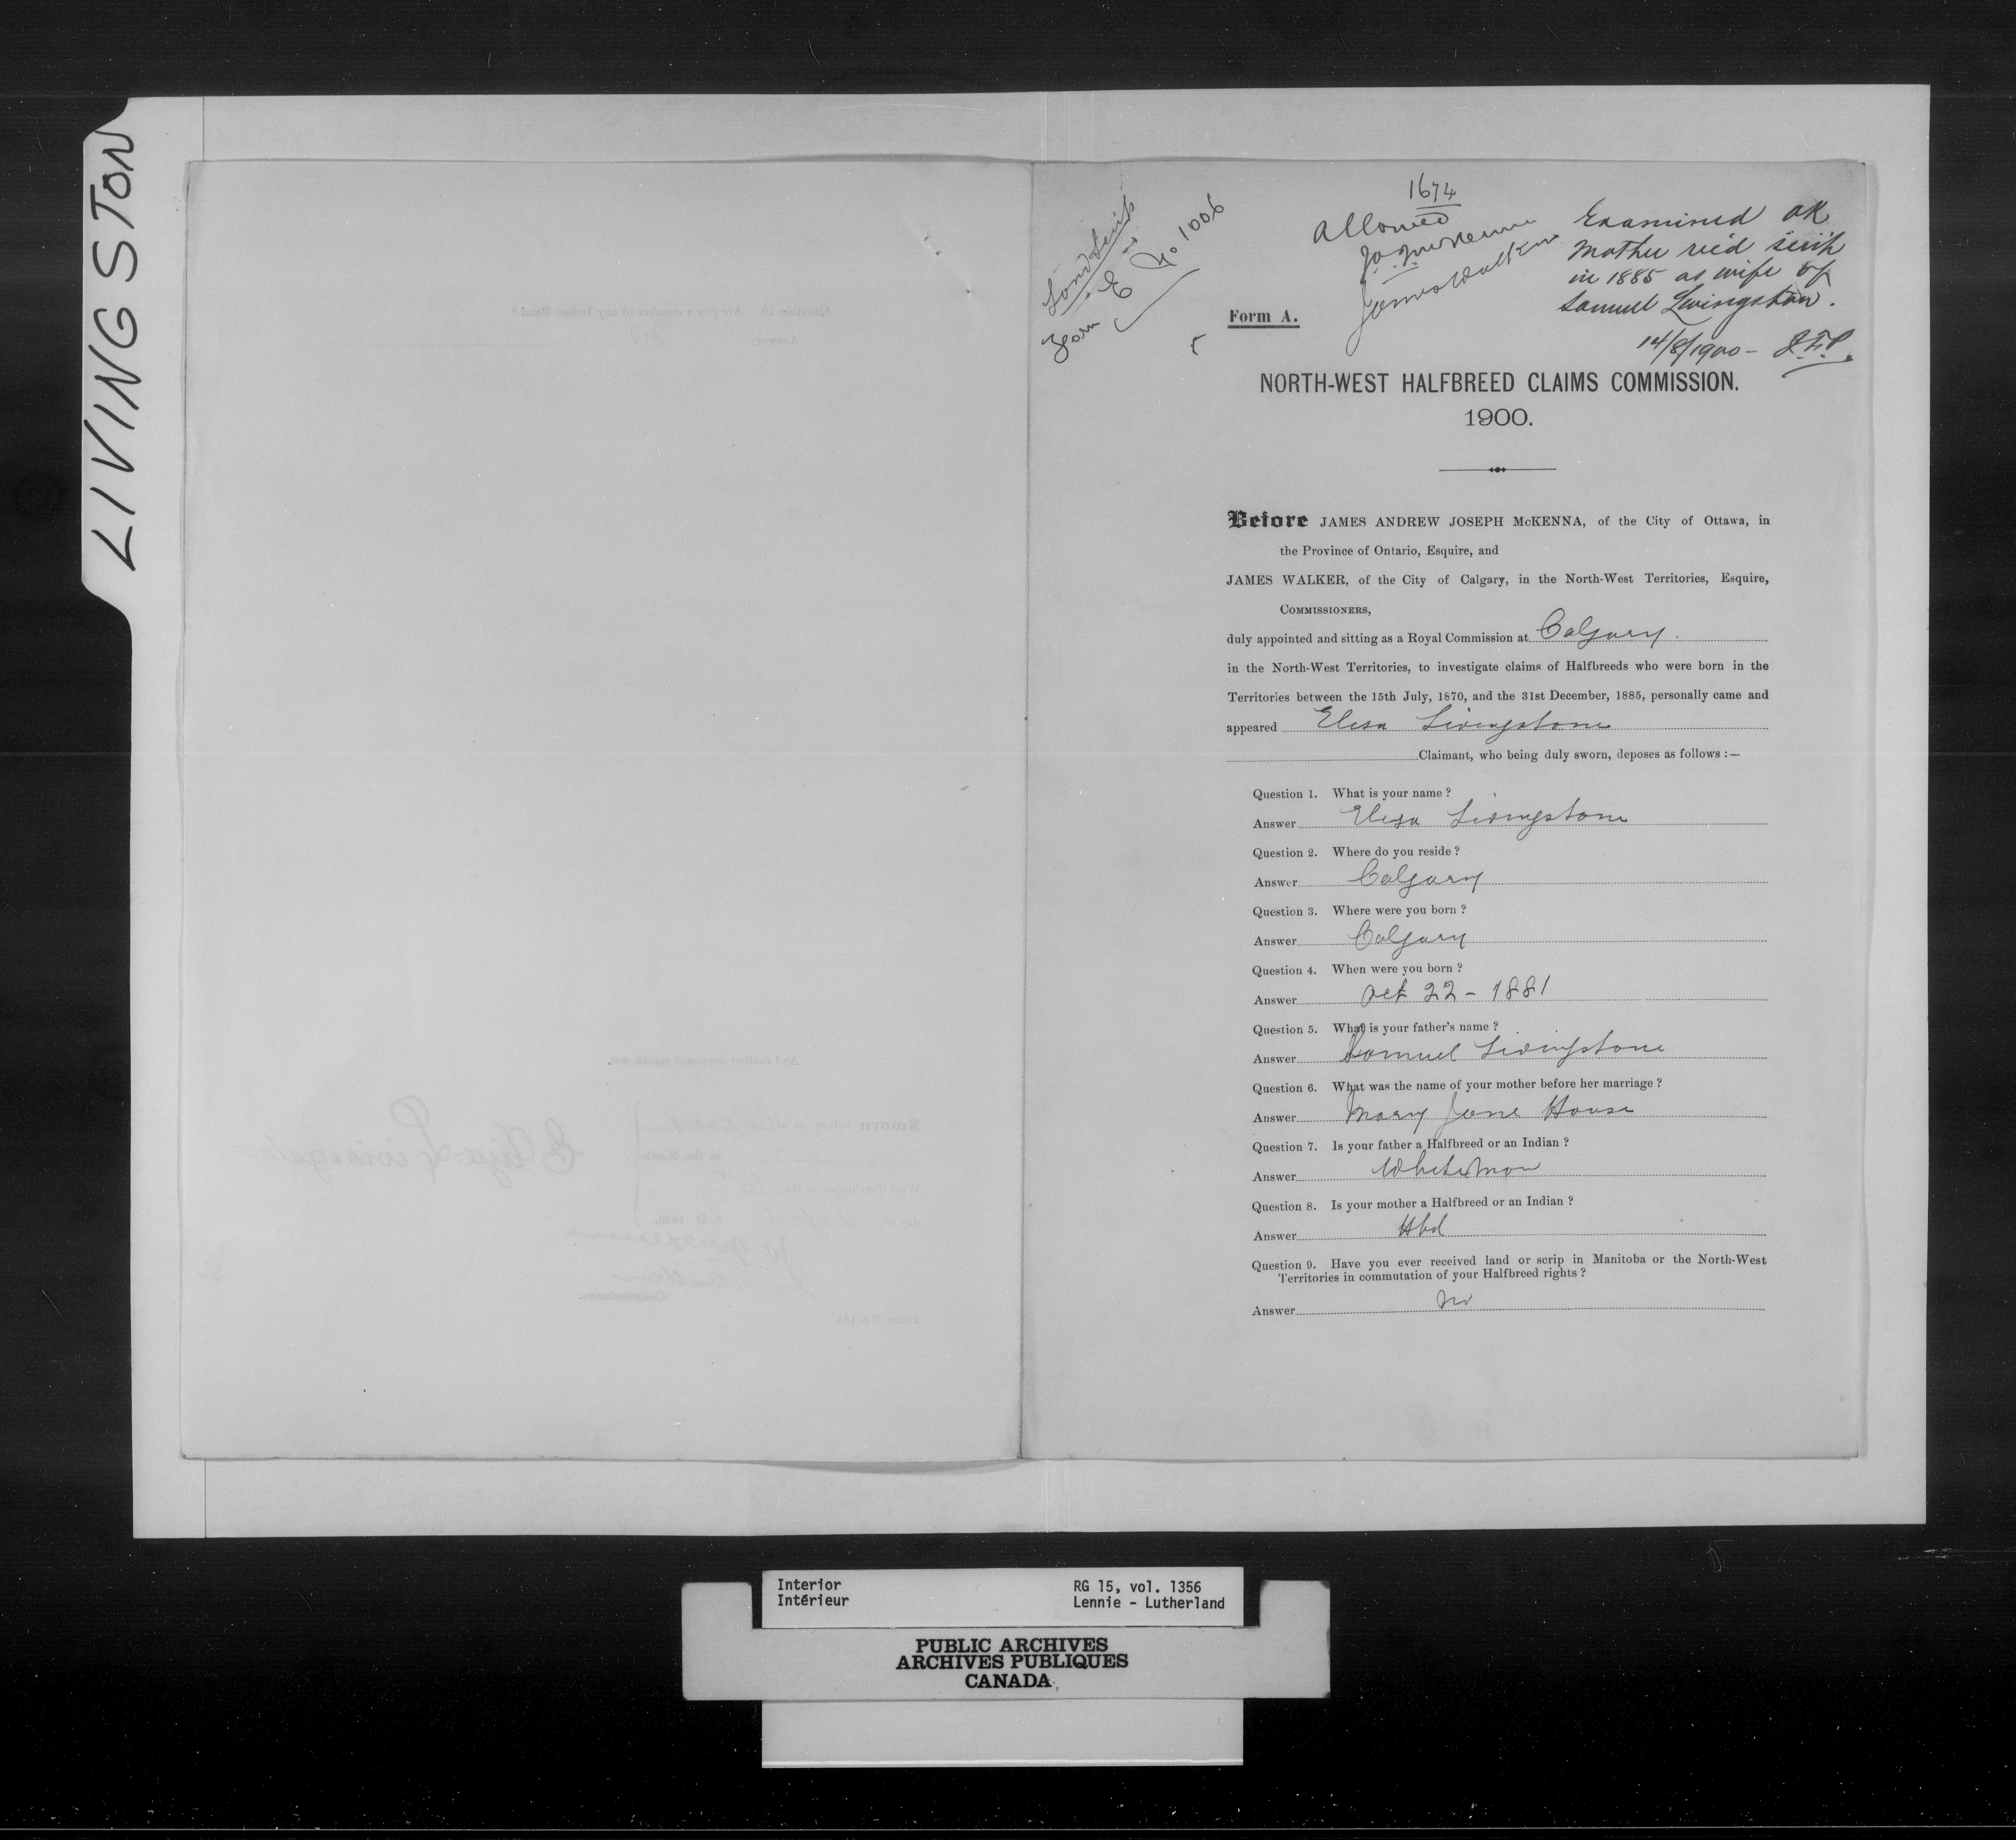 LIVINGSTON
1674
Land Scrip
Form E No 1006
Allowed
J.A.J. McKenna
James Walker
Examined OK
Mother rec'd scrip
in 1885 as wife of
Samuel Livingston.
14/8/1900 - J.F.P.
Form A.
NORTH-WEST HALFBREED CLAIMS COMMISSION.
1900.
Before JAMES ANDREW JOSEPH McKENNA, of the City of Ottawa, in
the Province of Ontario, Esquire, and
JAMES WALKER, of the City of Calgary, in the North-West Territories, Esquire,
COMMISSIONERS,
duly appointed and sitting as a Royal Commission at Calgary.
in the North-West Territories, to investigate claims of Halfbreeds who were born in the
Territories between the 15th July, 1870, and the 31st December, 1885, personally came and
appeared Elisa Livingstone
Claimant, who being duly sworn, deposes as follows :—
Question 1. What is your name ?
Answer Eliza Livingstone
Question 2. Where do you reside ?
Answer Calgary
Question 3. Where were you born ?
Answer Calgary
Question 4. When were you born ?
Answer Oct 22 - 1881
Question 5. What is your father's name ?
Answer Samuel Livingstone
Question 6. What was the name of your mother before her marriage ?
Answer Mary Jane House
Question 7. Is your father a Halfbreed or an Indian ?
Answer Whiteman
Question 8. Is your mother a Halfbreed or an Indian ?
Answer Hbd
Question 9. Have you ever received land or scrip in Manitoba or the North-West
Territories in commutation of your Halfbreed rights ?
Answer No
Interior RG 15, vol. 1356
Intérieur Lennie - Lutherland
PUBLIC ARCHIVES
ARCHIVES PUBLIQUES
CANADA